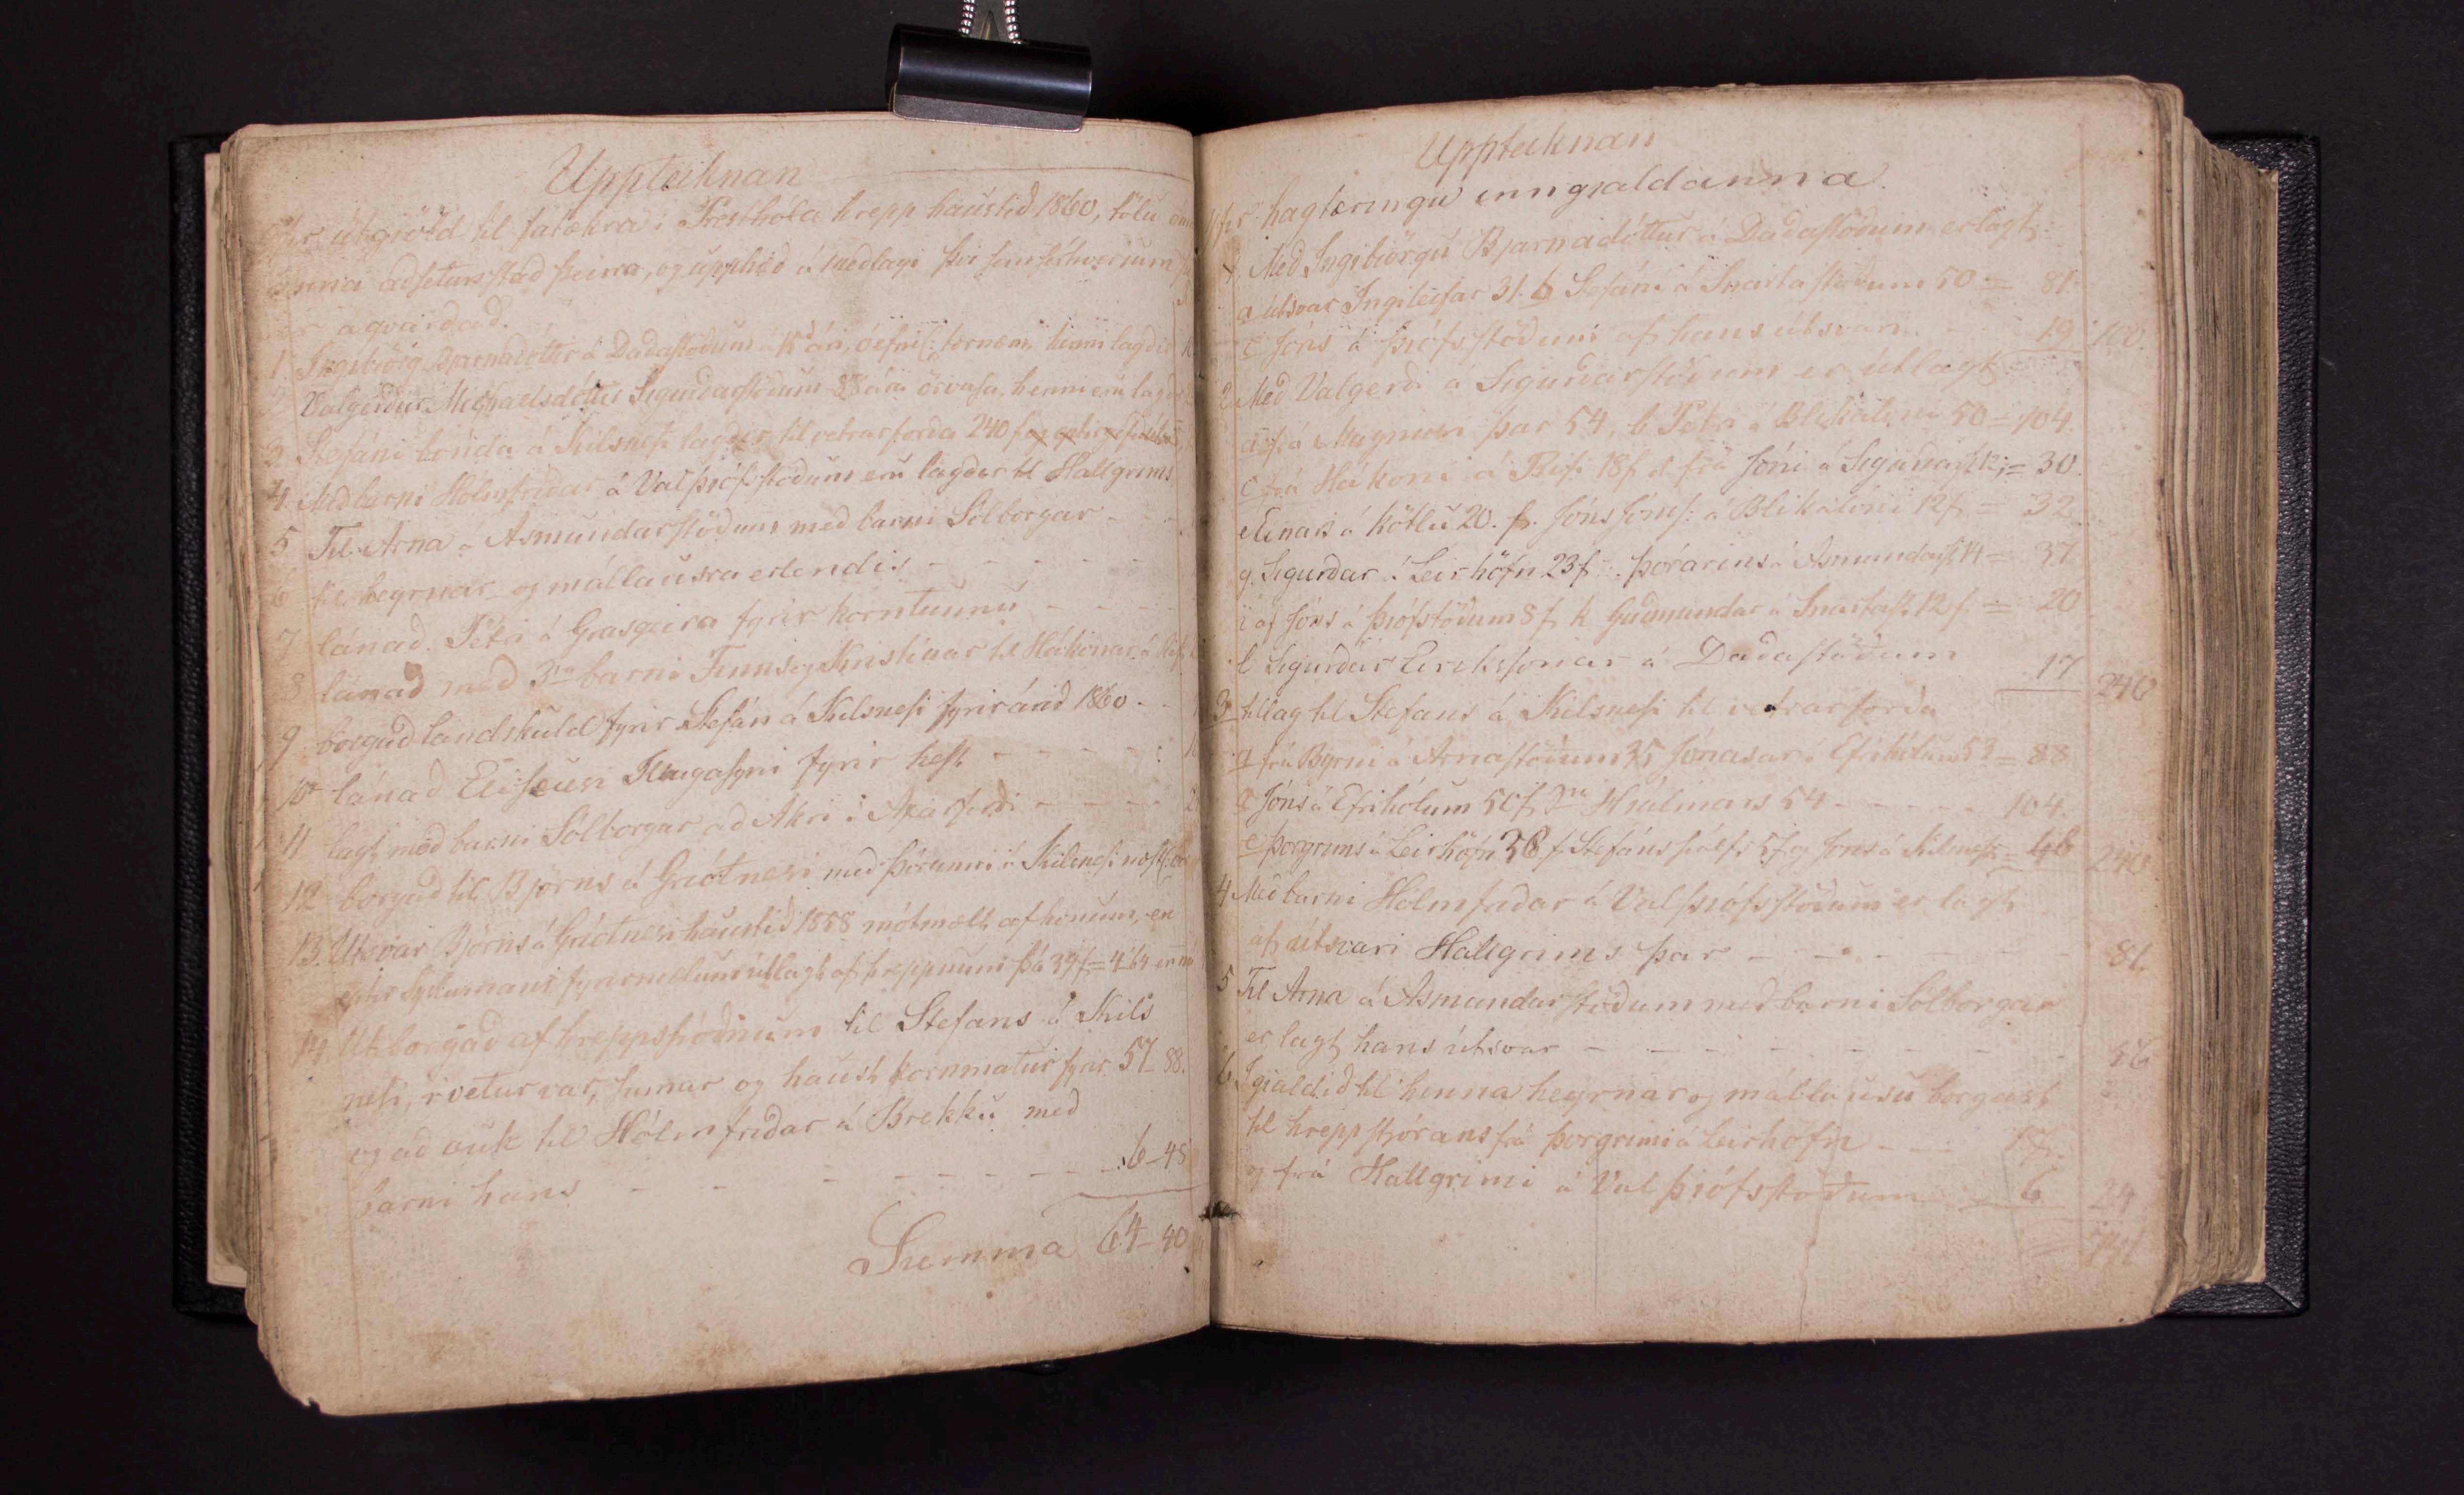 Uppteiknan
yfir útgiöld til fátækra i Presthóla hrepp haustið 1860, tölu óm
anna aðseturstað þeirra, og upphæð á meðlagi því sem sérhverium
er aqvarðað.
1 Ingibiörg Bjarnadóttir á Daðastöðum á 15da ári, óefnil: tornæm, henni lagdir
2 Valgerður Michaelsdóttir Sigurðarstöðum 88 ára örvasa, henni eru lagdir
3 Stefáni bónda á Skilsnesi lagdir til vetrarforða 240 f
4. Með barni Hólmfríðar á Valþiófsstöðum eru lagdar til Hallgrims
5 Til Arna á Asmundarstöðum með barni Sólborgar - -
6 til heyrnar- og mállausra erlendis - - - - -
7 lánað Pétri á Grasgeira fyrir korntunnu - - - -
8 lánað með 3ja barni Finns og Kristinar til Hákonar á Rif
9 borgað landskuld fyrir Stefán á Skilsnesi fyrir árið 1860 -
10 lánað Eliseusi Illugasyni fyrir hest - - - - -
11 lagt með barni Sólborgar að Akri i Axarfirði - - - -
12 borgað til Bjorns á Griótnesi með Þórunni á Skilsnesi
13. Utsvar Bjorns á Griótnesi haustið 1858 mótmælt af honum, en
eptir Syslumans fyrirmælum útlagt af hreppnum þá 39 f = 4 64
14. Utborgað af hreppssióðnum til Stefans á Skils
nesi, i vetur var, sumar og haust kornmatur fyrir 57 - 88.
og að auk til Hólmfríðar á Brekku með
barni hans - - - - - - - 6 - 48
Summa 64 - 40
Uppteiknan
yfir hagtæringu inngjaldanna.
1. Með Ingibiörgu Bjarnadóttur á Daðastöðum er lagt:
a útsvar Ingileifar 31. b Stefáni á Snartastöðum 50 = 81.
c Jóns á Þiófsstöðum af hans útsvari - 19 100.
2 Með Valgerði á Sigurðarstöðum er útlagt
a frá Magnusi þar 54, b Petri á Blikalóni 50 = 104.
c frá Hákoni á Rifi 18 f d frá Jóni á Sigurðarst 12 = 30.
e Einars á Kötlu 20. f. Jóns Jónss: á Blikalóni 12 f = 32
g. Sigurðar i Leirhöfn 23 f . Þórarins á Asmundarst 14 = 37
i af Jóns á Þiófstöðum 8 f k Guðmundar á Snartast. 12 f = 20
l Sigurðar Eirikssonar á Daðastöðum 17 240
3 tillag til Stefans á Skilsnesi til vetrarforða
a frá Birni á Arnastöðum 35 Jónasar á Efrihólum 53 = 88
c Jóns á Efrihólum 50 f Hiálmars 54 - - - - - 104.
e Þorgrims á Leirhöfn 38 f Stefáns siálfs 5 f og Jóns á Skilnesi = 48 240
4 Með barni Hólmfríðar á Valþiófsstöðum er lagt
af útsvari Hallgrims þar - - - - - - 81.
5 Til Arna á Asmundarstöðum með barni Sólborgar
er lagt hans útsvar - - - - - - - - 56
6 I gialdið til hinna heyrnar og mállausu borgast
til hreppstjórans frá Þorgrimi á Leirhöfn - - - 17.
og frá Hallgrimi á Valþiófsstöðum - 6 24
741